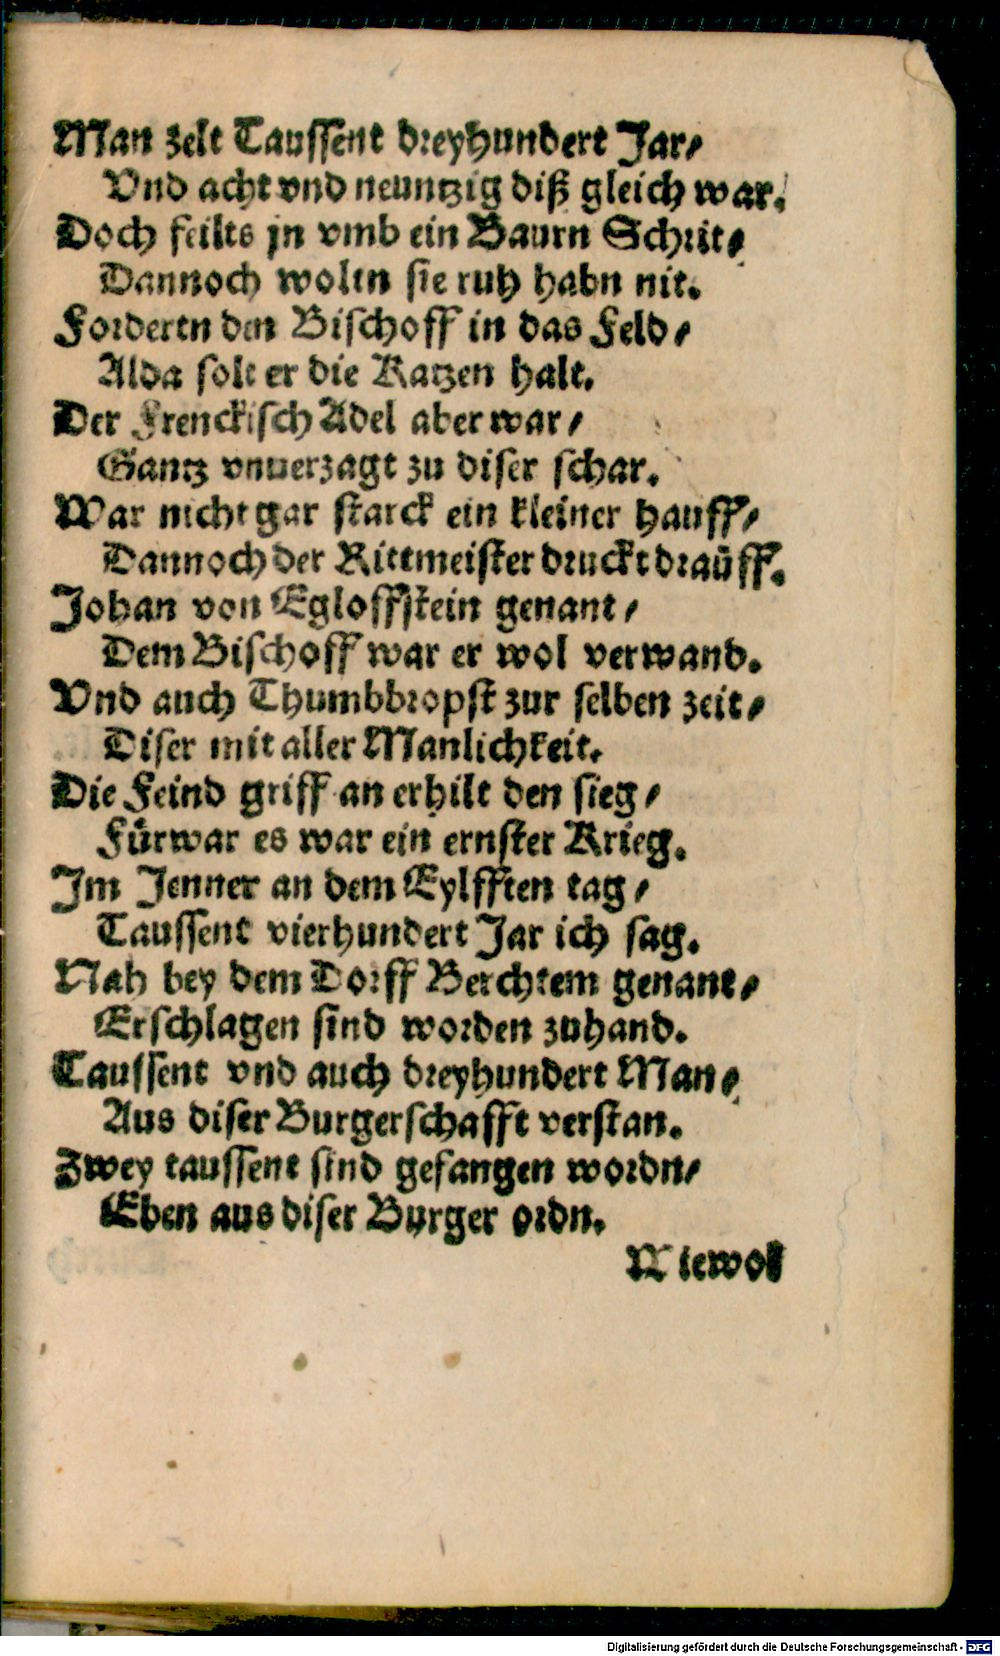 Man zelt Taussent dreyhundert Jar/
Vnd acht vnd neuntzig diß gleich war.
Doch feilts jn vmb ein Baurn Schrit/
Dannoch woltn sie ruh habn nit.
Forderen den Bischoff in das Feld/
Alda solt er die Katzen halt.
Der Frenckisch Adel aber war/
Gantz vnuerzagt zu diser schar.
War nicht gar starck ein kleiner hauff/
Dannoch der Rittmeister druckt drauff.
Johan von Egloffstein genant/
Dem Bischoff war er wol verwand.
Vnd auch Thumbbropst zur selben zeit/
Diser mit aller Manlichkeit.
Die Feind griff an erhilt den sieg/
Fürwar es war ein ernster Krieg.
Im Jenner an dem Eylfften tag/
Taussent vierhundert Jar ich sag.
Nah bey dem Dorff Berchtem genant/
Erschlagen sind worden zuhand.
Taussent vnd auch dreyhundert Man/
Aus diser Burgerschafft verstan.
Zwey taussent sind gefangen wordn/
Eben aus diser Burger ordn.
Wiewol
Digitalisierung gefördert durch die Deutsche Forschungsgemeinschaft - DFG